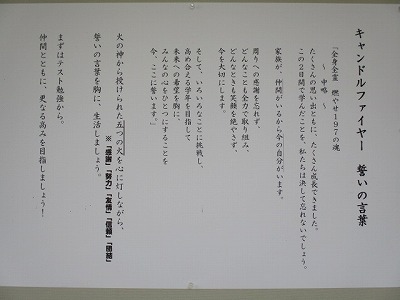 キャンドルファイヤー 誓いの言葉
「全身全霊 燃やせ197の魂
～ 中略 ～
たくさんの思い出とともに、たくさん成長できました。
この2日間で学んだことを、私たちは決して忘れないでしょう。
家族が、仲間がいるから今の自分がいます。
周りへの感謝を忘れず、
どんなことも全力で取り組み、
どんなときも笑顔を絶やさず、
今を大切にします。
そして、いろいろなことに挑戦し、
高め合える学年を目指して
未来への希望を胸に、
みんなの心をひとつにすることを
今、ここに誓います。」
火の神から授けられた五つの火を心に灯しながら、
※「感謝」「努力」「友情」「信頼」「団結」
誓いの言葉を胸に、生活しましょう。
まずはテスト勉強から。
仲間とともに、更なる高みを目指しましょう！